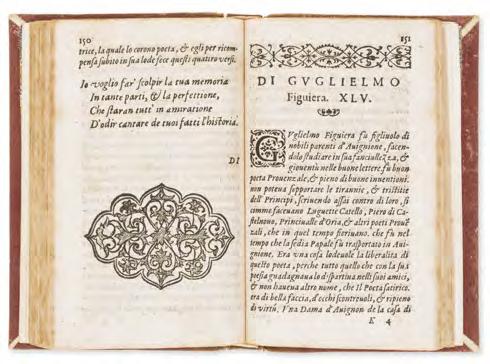 150
trice, la quale lo corono poeta, & egli per ricom-
pensa subito in sua lode fece questi quattro versi.
Io voglio far' scolpir la tua memoria
In tante parti, & la perfettione,
Che staran tutt' in amiratione
D'odir cantare de tuoi fatti l'historia.
DI
151
DI GVGLIELMO
Figuiera. XLV.
GVglielmo Figuiera fù figliuolo di
nobili parenti d'Auignione, facen-
dolo studiare in sua fanciullezza, &
gioventù nelle buone lettere, fù buon
poeta Prouenzale, & pieno di buone inuentioni.
non poteua sopportare le tirannie, & tristitie
dell' Principi, scriuendo assai contro di loro, si
comme faceuano Luguette Catello, Piero di Ca-
stelnuouo, Princiualle d'Oria, & altri poeti Prouẽ-
zali, che in quel tempo fioriuano. che fù nel
tempo che la sedia Papale fù trasportato in Aui-
gnione. Era vna cosa lodeuole la liberalità di
questo poeta, perche tutto quello che con la sua
poesia guadagnaua lo dispartiua nelli suoi amici,
& non haueua altro nome, che Il Poeta satirico.
era di bella faccia, d'occhi scontrouoli, & ripieno
di virtù, Vna Dama d'Auignon de la casa di
K 4